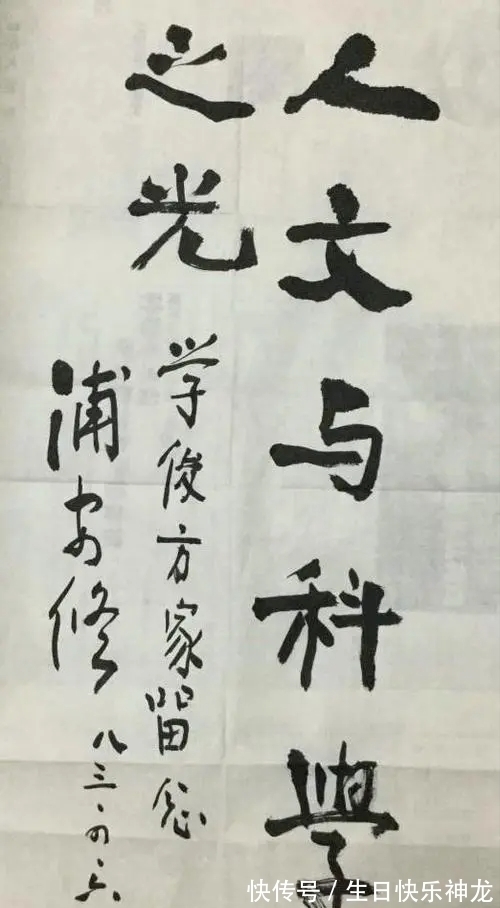 人文与科學
之光
学俊方家留念
浦安修
八三·四·六
快传号/生日快乐神龙